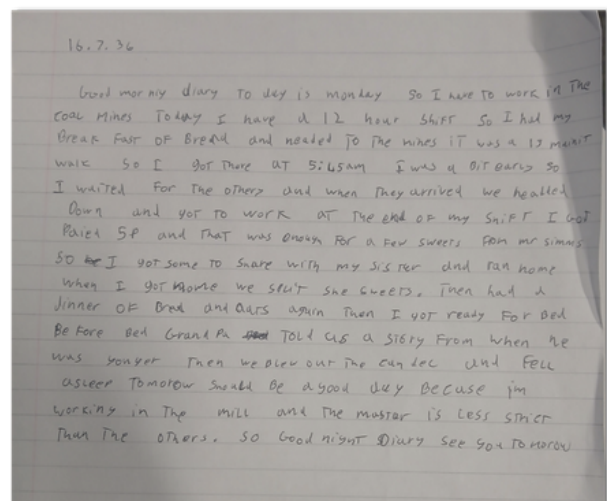 16.7.36
Good morniy diary To day is monday So I have to work in The
Coal Mines Today I have a 12 hour Shift So I had my
Break Fast OF Bread and headed To The mines iT was a 15 menit
walk So I got There aT 5:45am I was a BiT early So
I waited For The others and when They arrived we headded
Down and got To work aT The end of my ShiFT I GoT
Paied 5P and That was enough For a Few sweets Fom mr simms
So I got some To share with my SisTer and ran home
when I got home we the sweets. Then had a
Jinner OF Bred and again Then I got ready For Bed
BeFore Bed GrandPa Told us a story From when he
was yonger Then we Blew out The candec and Fell
asleep Tomorow should Be a good day Becuse im
working in The mill and The master is Less sTricT
Than The oThers. So Good night Diary See you Tomorow